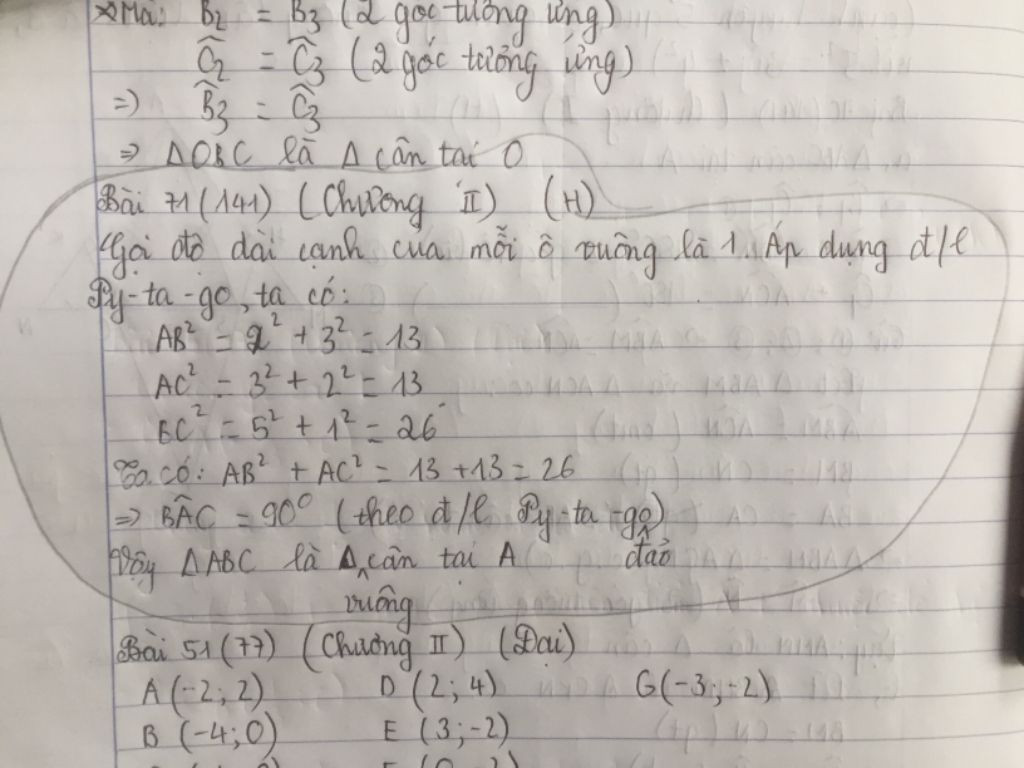 Mà: B̂₂ = B̂₃ (2 góc tương ứng)
Ĉ₂ = Ĉ₃ (2 góc tương ứng)
=> B̂₃ = Ĉ₃
=> ΔOBC là Δ cân tại O
Bài 71 (141) (Chương II) (H)
Gọi độ dài cạnh của mỗi ô vuông là 1. Áp dụng đ/l
Py-ta-go, ta có:
AB² = 2² + 3² = 13
AC² = 3² + 2² = 13
BC² = 5² + 1² = 26
Ta có: AB² + AC² = 13 + 13 = 26
=> BÂC = 90° (theo đ/l Py-ta-go)
đảo
Vậy ΔABC là Δ cân tại A
vuông
Bài 51 (77) (Chương II) (Đại)
A (-2; 2) D (2; 4) G(-3; -2)
B (-4; 0) E (3; -2)